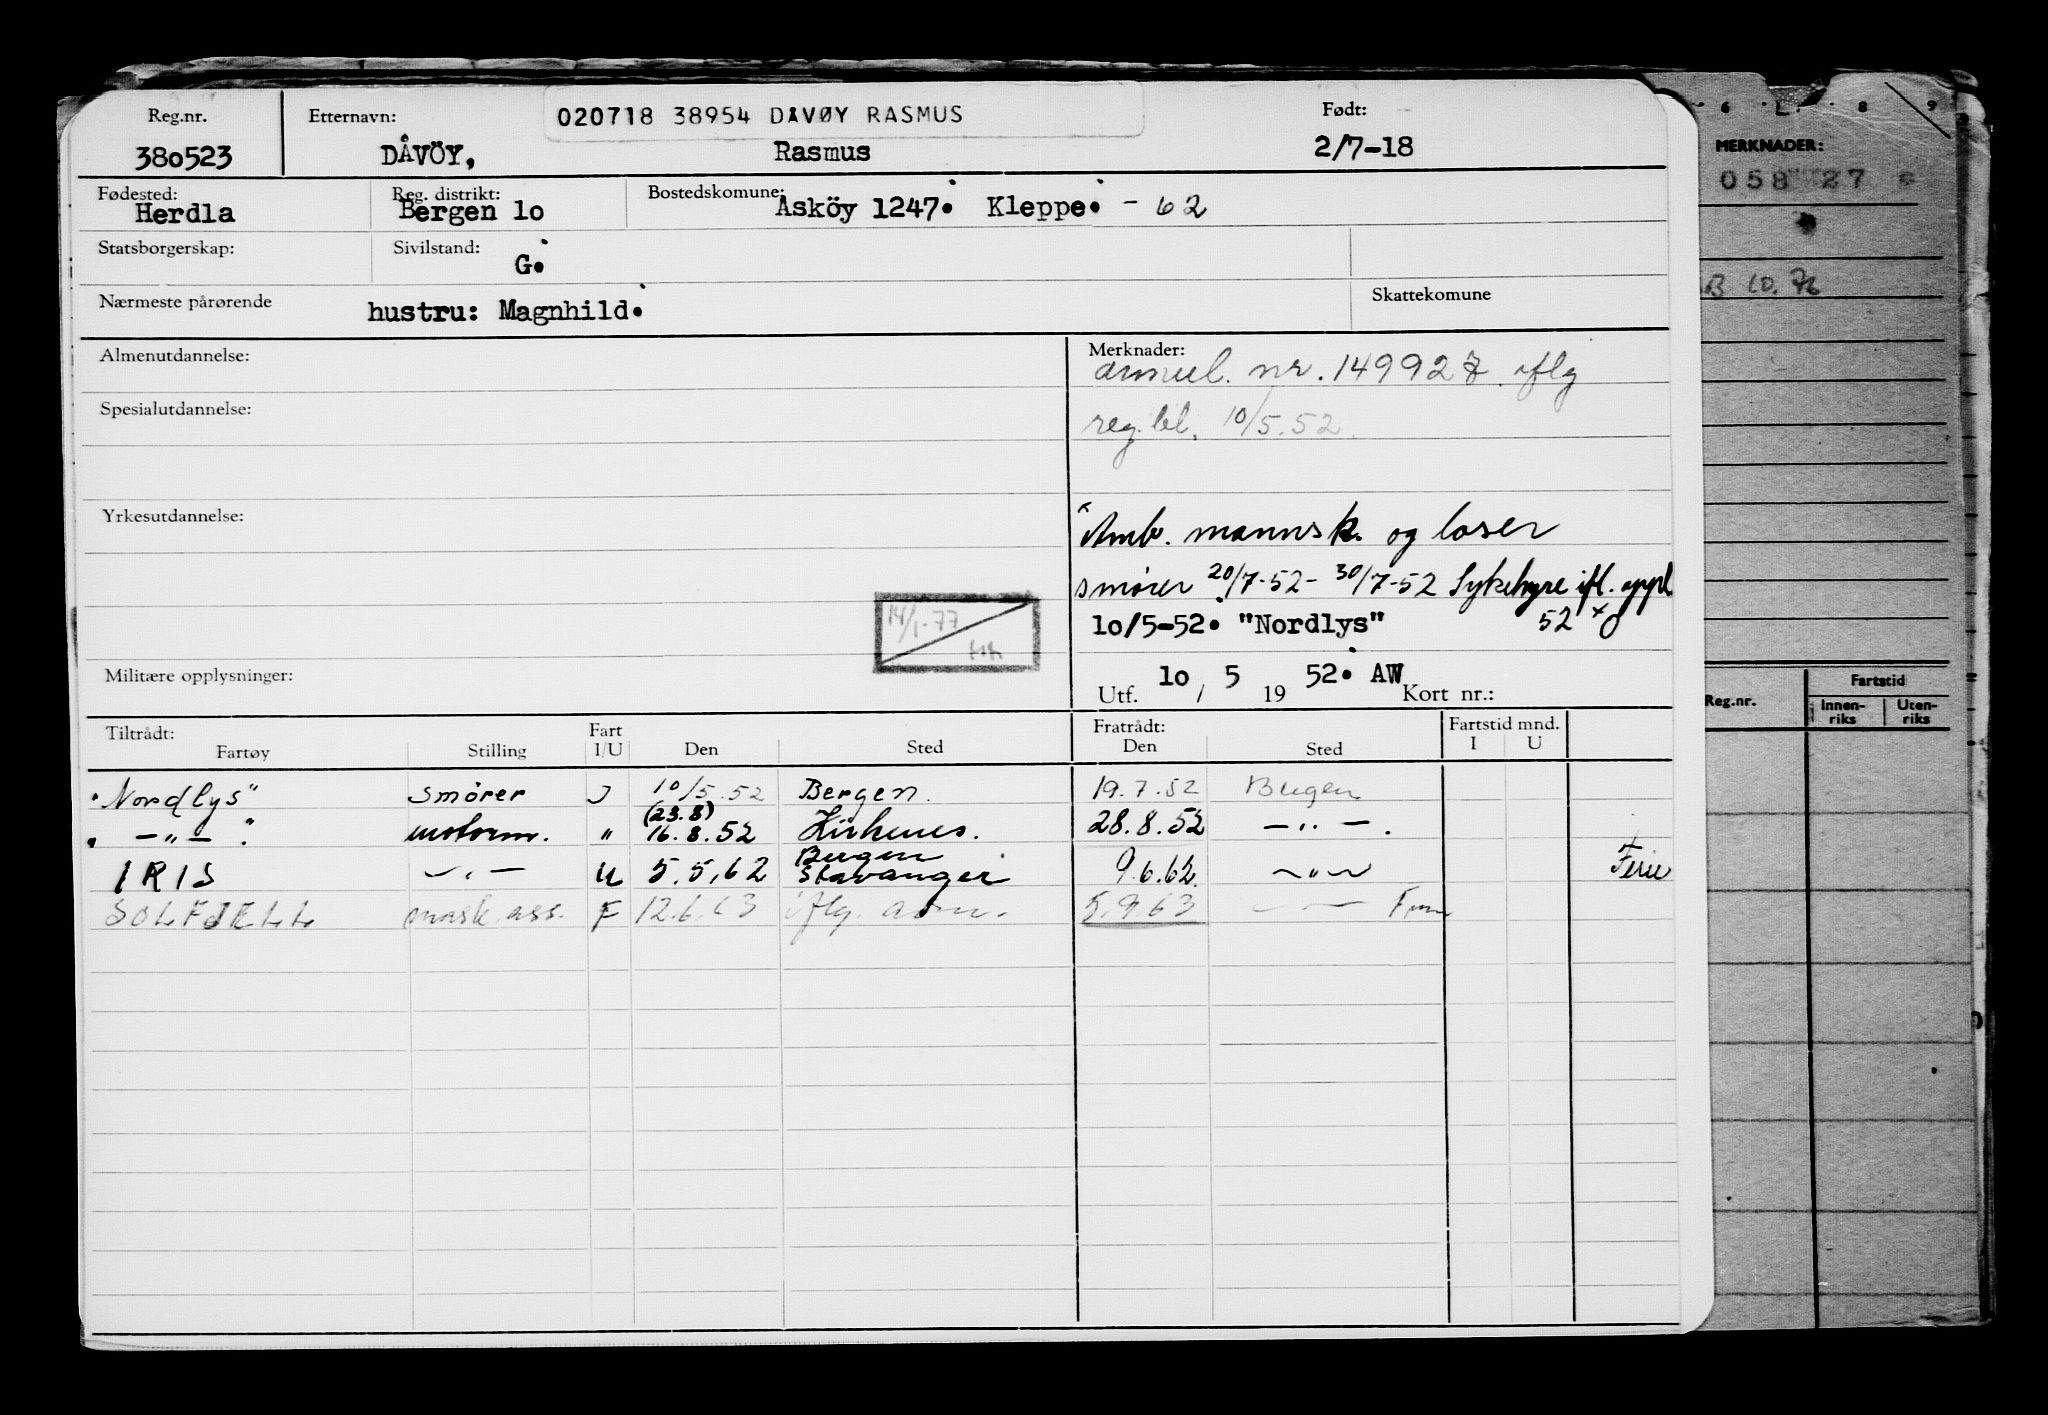 Reg.nr. Etternavn: 020718 38954 DÅVØY RASMUS Født:
380523 DÅVÖY, Rasmus 2/7-18
Fødested: Reg. distrikt: Bostedskomune:
Herdla Bergen 10 Asköy 1247. Kleppe. - 62
Statsborgerskap: Sivilstand:
G.
Nærmeste pårørende hustru: Magnhild. Skattekomune
Almenutdannelse: Merknader:
annul. nr. 149927 iflg
Spesialutdannelse: reg.bl. 10/5.52.
Yrkesutdannelse:
Amb. mannsk. og loser
smører 20/7-52- 30/7-52 Sykehyre ifl. oppl
14/1-77
10/5-52. "Nordlys" 52
Militære opplysninger:
Utf. 10 / 5 19 52. AW Kort nr.:
Tiltrådt: Fart Fratrådt: Fartstid mnd.
Fartøy Stilling I/U Den Sted Den Sted I U
"Nordlys" smører I 10/5.52 Bergen. 19.7.52 Bergen
" -"- " motorm. " (23.8) 16.8.52 Kirkenes. 28.8.52 -"-.
IRIS -"- U 5.5.62 Bergen Stavanger 9.6.62 -"- Ferie
SOLFJELL mask.ass. F 12.6.63 iflg. adm. 5.9.63 -"-
6 L. 8 9
MERKNADER:
058 27
B 10.76
Reg.nr. Fartstid
Innen-riks Uten-riks